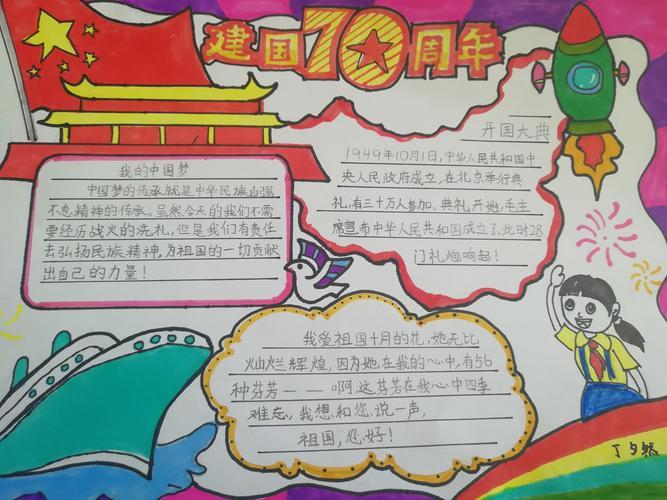 建国70周年
开国大典
1949年10月1日,中华人民共和国中
央人民政府成立,在北京举行典
礼,有三十万人参加。典礼开始,毛主
席宣布中华人民共和国成立了,此时28
门礼炮响起!
我的中国梦
中国梦的传承就是中华民族自强
不息精神的传承。虽然今天的我们不需
要经历战火的洗礼,但是我们有责任
去弘扬民族精神,为祖国的一切贡献
出自己的力量!
我爱祖国十月的花,她无比
灿烂辉煌,因为她在我的心中,有56
种芬芳——啊,这芬芳在我心中四季
难忘,我想和您说一声,
祖国,您好!
丁夕然